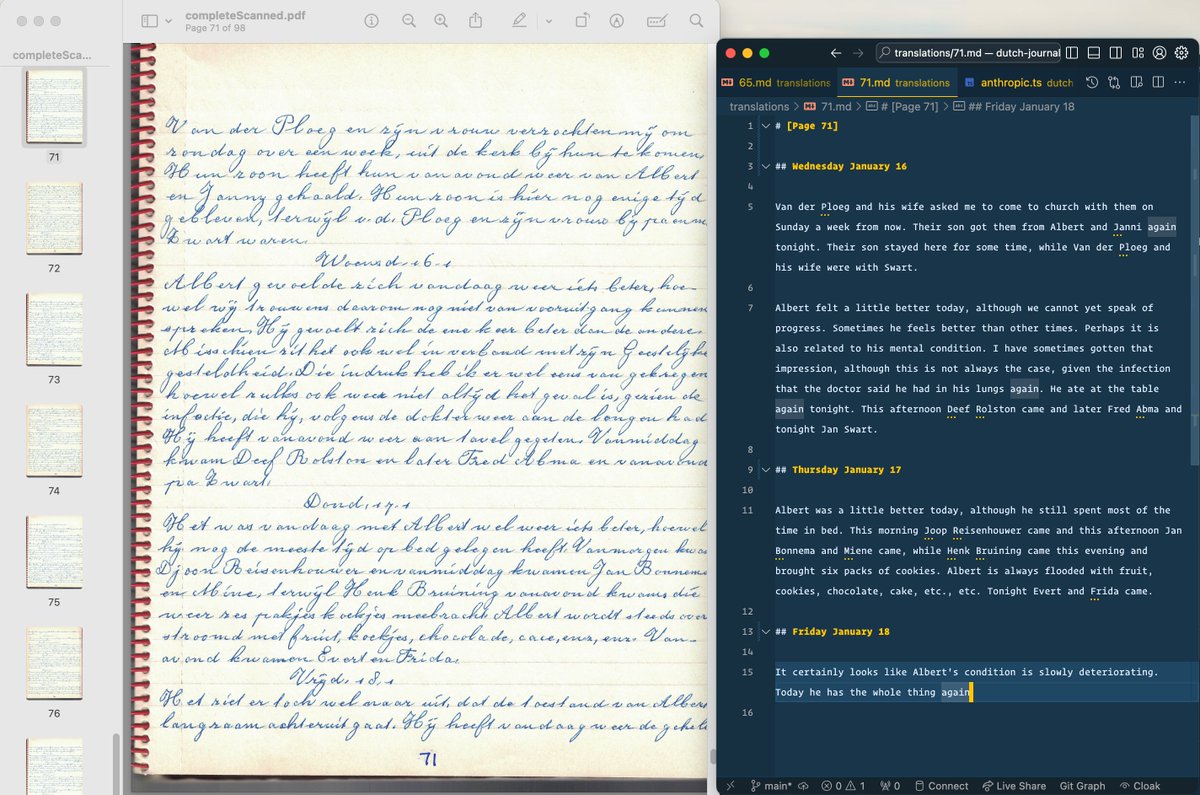 completeScanned.pdf
Page 71 of 98
completeSca...
71
72
73
74
75
76
Van der Ploeg en zijn vrouw verzochten mij om
zondag over een week, uit de kerk bij hun te komen.
Hun zoon heeft hun vanavond weer van Albert
en Janny gehaald. Hun zoon is hier nog enige tijd
gebleven, terwijl v.d. Ploeg en zijn vrouw bij pa en m
Zwart waren.
Woensd. 16-1
Albert gevoelde zich vandaag weer iets beter, hoe-
wel wij trouwens daarom nog niet van vooruitgang kunnen
spreken. Hij gevoelt zich de ene keer beter dan de andere.
Misschien zit het ook wel in verband met zijn Geestelijke
gesteldheid. Die indruk heb ik er wel eens van gekregen
hoewel zulks ook weer niet altijd het geval is, gezien de
infectie, die hij, volgens de dokter weer aan de longen had
Hij heeft vanavond weer aan tavel gegeten. Vanmiddag
kwam Deef Rolston en later Fred Abma en vanavond
pa Zwart.
Dond. 17-1
Het was vandaag met Albert wel weer iets beter, hoewel
hij nog de meeste tijd op bed gelegen heeft. Vanmorgen kwam
Djoon Reisenhouwer en vanmiddag kwamen Jan Bonnema
en Mine, terwijl Henk Bruining vanavond kwam die
weer zes pakjes koekjes meebracht. Albert wordt steeds over
stroomd met fruit, koekjes, chocolade, cace, enz, enz. Van-
avond kwamen Evert en Frida.
Vrijd. 18-1
Het ziet er toch wel naar uit, dat de toestand van Albert
langzaam achteruit gaat. Hij heeft vandaag weer de gehele
71
translations/71.md — dutch-journal
65.md translations
71.md translations
anthropic.ts dutch
translations > 71.md > # [Page 71] > ## Friday January 18
1 # [Page 71]
2
3 ## Wednesday January 16
4
5 Van der Ploeg and his wife asked me to come to church with them on
Sunday a week from now. Their son got them from Albert and Janni again
tonight. Their son stayed here for some time, while Van der Ploeg and
his wife were with Swart.
6
7 Albert felt a little better today, although we cannot yet speak of
progress. Sometimes he feels better than other times. Perhaps it is
also related to his mental condition. I have sometimes gotten that
impression, although this is not always the case, given the infection
that the doctor said he had in his lungs again. He ate at the table
again tonight. This afternoon Deef Rolston came and later Fred Abma and
tonight Jan Swart.
8
9 ## Thursday January 17
10
11 Albert was a little better today, although he still spent most of the
time in bed. This morning Joop Reisenhouwer came and this afternoon Jan
Bonnema and Miene came, while Henk Bruining came this evening and
brought six packs of cookies. Albert is always flooded with fruit,
cookies, chocolate, cake, etc., etc. Tonight Evert and Frida came.
12
13 ## Friday January 18
14
15 It certainly looks like Albert's condition is slowly deteriorating.
Today he has the whole thing again
16
main* 0 1 0 Connect Live Share Git Graph Cloak